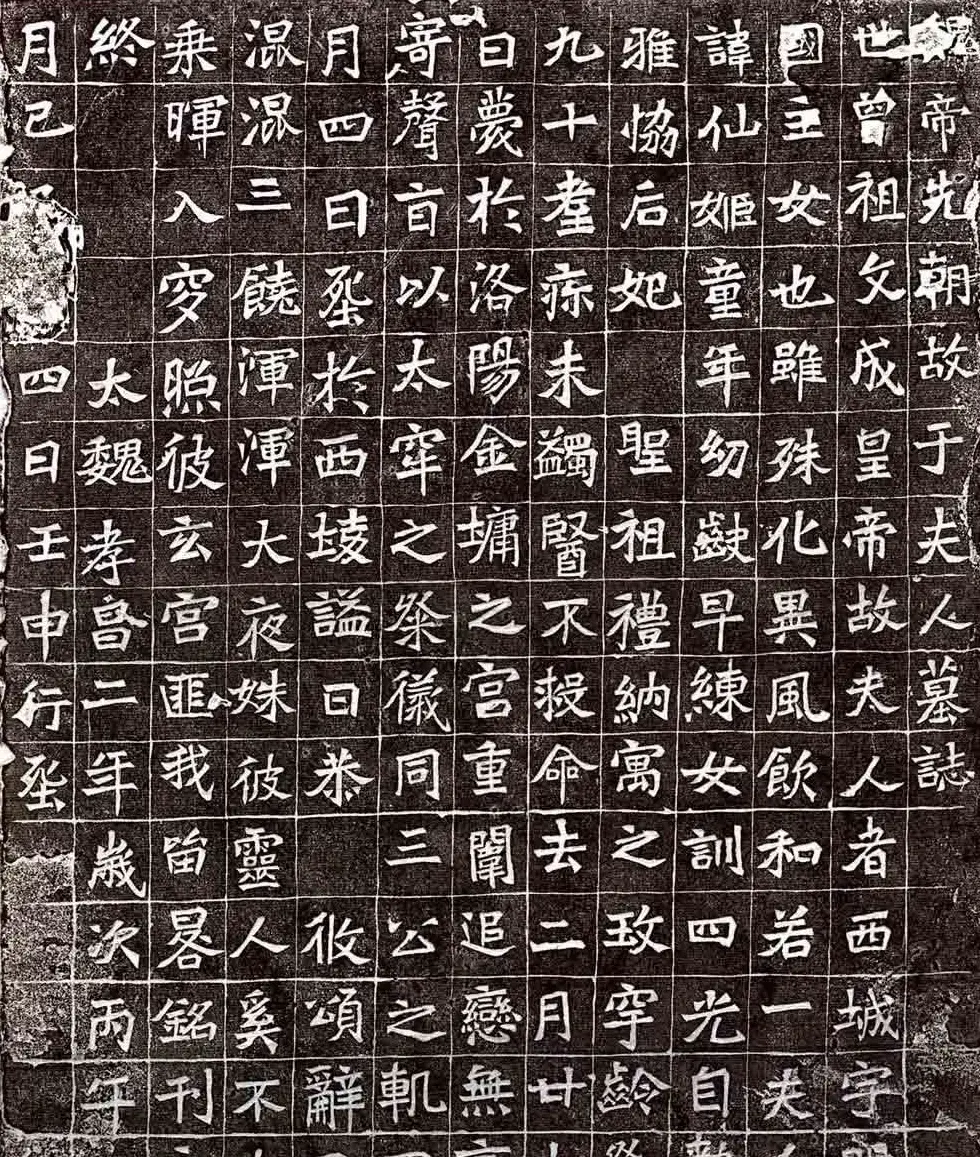 魏帝先朝故于夫人墓誌
世曾祖文成皇帝故夫人者西城宇
國主女也雖殊化異風飲和若一夫
諱仙姬童年幼齔早練女訓四光自
雅協后妃 聖祖禮納寓之玫罕齡
九十耋疹未蠲醫不救命去二月廿
日薨於洛陽金墉之宮重闈追戀無
寄聲旨以太牢之祭儀同三公之軌
月四日塟於西陵謚曰恭 攸頌辭
混混三饒渾渾大夜姝彼靈人奚不
乗暉入穸照彼玄宮匪我留晷銘刊
終 太魏孝昌二年歲次丙午
月己 四日壬申行塟